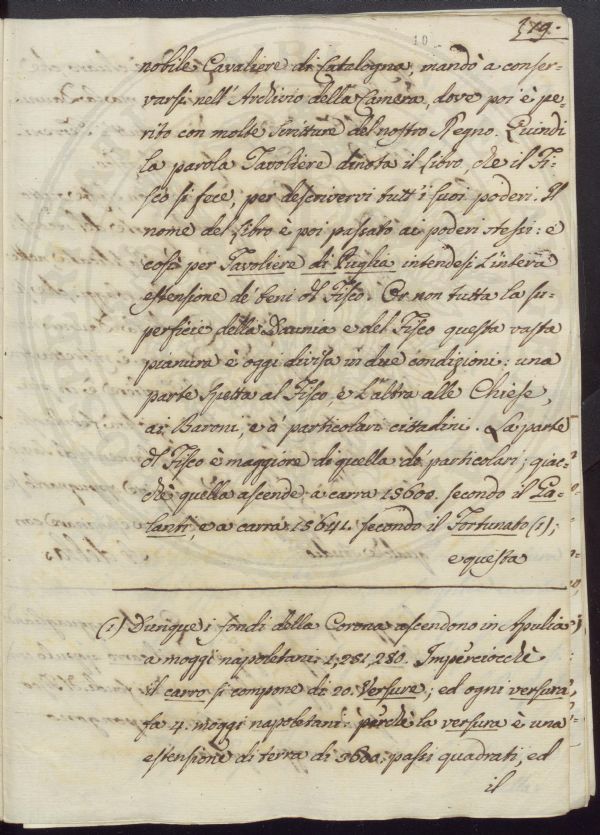 10
179.
nobile Cavaliere di Catalogna, mandò a conser-
varsi nell'Archivio della Camera, dove poi è pe-
rito con molte scritture del nostro Regno. Quindi
la parola Tavoliere dinota il libro, che il Fi-
sco si fece, per descrivervi tutt'i suoi poderi. Il
nome del libro è poi passato ai poderi stessi: e
così per Tavoliere di Puglia intendesi l'intera
estensione de' beni del Fisco. Or non tutta la su-
perficie della Daunia e del Fisco questa vasta
pianura è oggi divisa in due condizioni: una
parte spetta al Fisco, e l'altra alle Chiese,
ai Baroni, e a' particolari cittadini. La parte
del Fisco è maggiore di quella de' particolari; giac-
chè quella ascende a carra 15600. secondo il Ga-
lanti, e a carra 15641. secondo il Fortunato (1);
e questa
(1) Dunque i fondi della Corona ascendono in Apulia
a moggi napoletani 1,251,280. Imperciocchè
il carro si compone di 20. Versure; ed ogni versura
fa 4. moggi napoletani: perchè la versura è una
estensione di terra di 3600. passi quadrati, ed
il